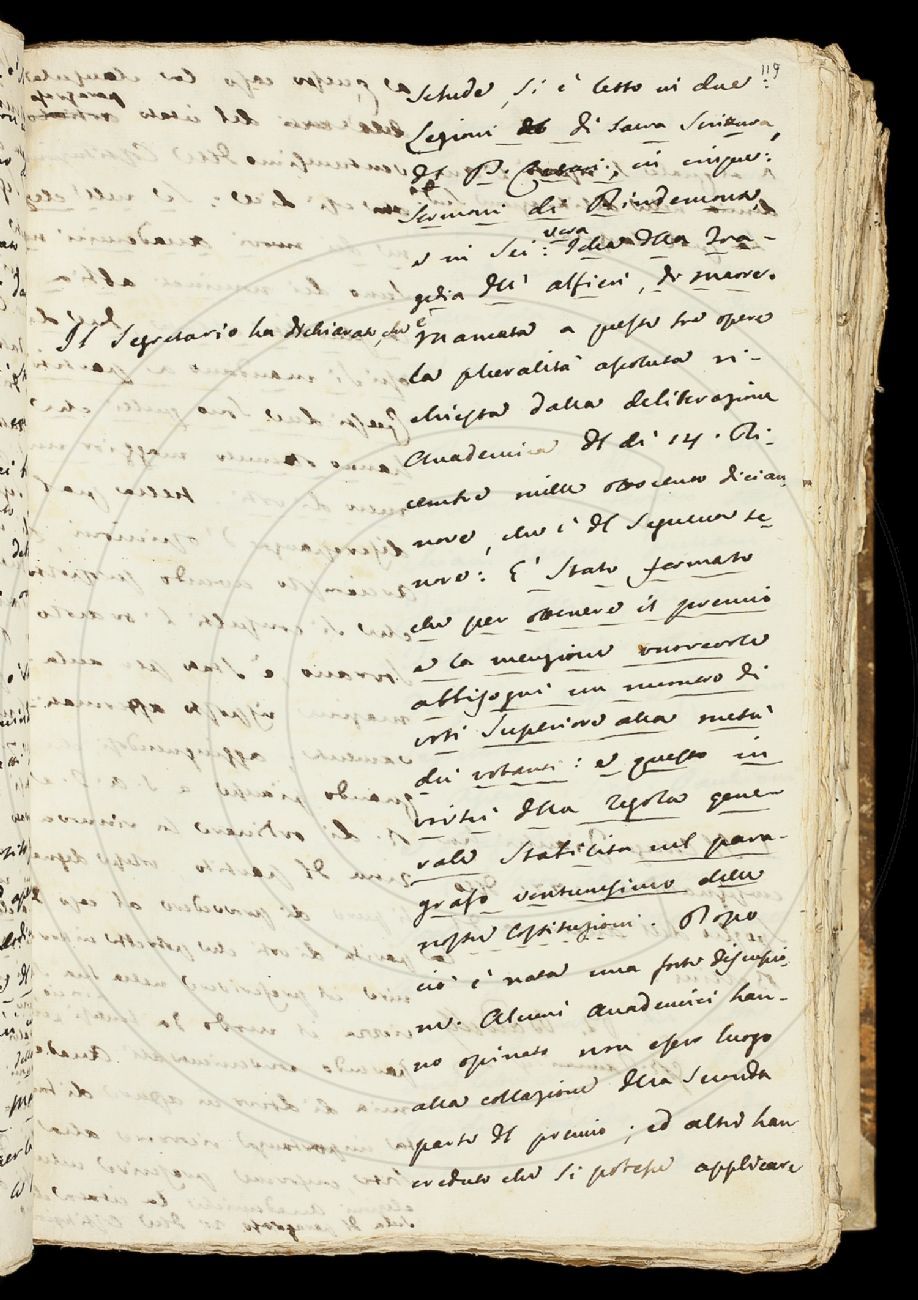 119
schede, si è letto in due:
Lezioni di Sacra Scrittura
del P. in cinque:
Sermoni di Pindemonte,
e in sei: vera Idea della Tra-
gedia dell' alfieri, di marre.
Il Segretario ha dichiarato, che è
mancata a queste tre opere
la pluralità assoluta ri-
chiesta dalla deliberazione
Accademica del dì 14. Di-
cembre mille ottocento dician-
nove, che è del seguente te-
nore: È stato fermato
che per ottenere il premio
e la menzione onorevole
abbisogni un numero di
voti superiore alla metà
dei votanti: e questo in
virtù della regola gene-
rale stabilita nel para-
grafo ventunesimo delle
nostre Costituzioni. Dopo
ciò è nata una forte discussio-
ne. Alcuni Accademici han-
no opinato non esser luogo
alla collazione della seconda
parte del premio; ed altri han
creduto che si potesse applicare